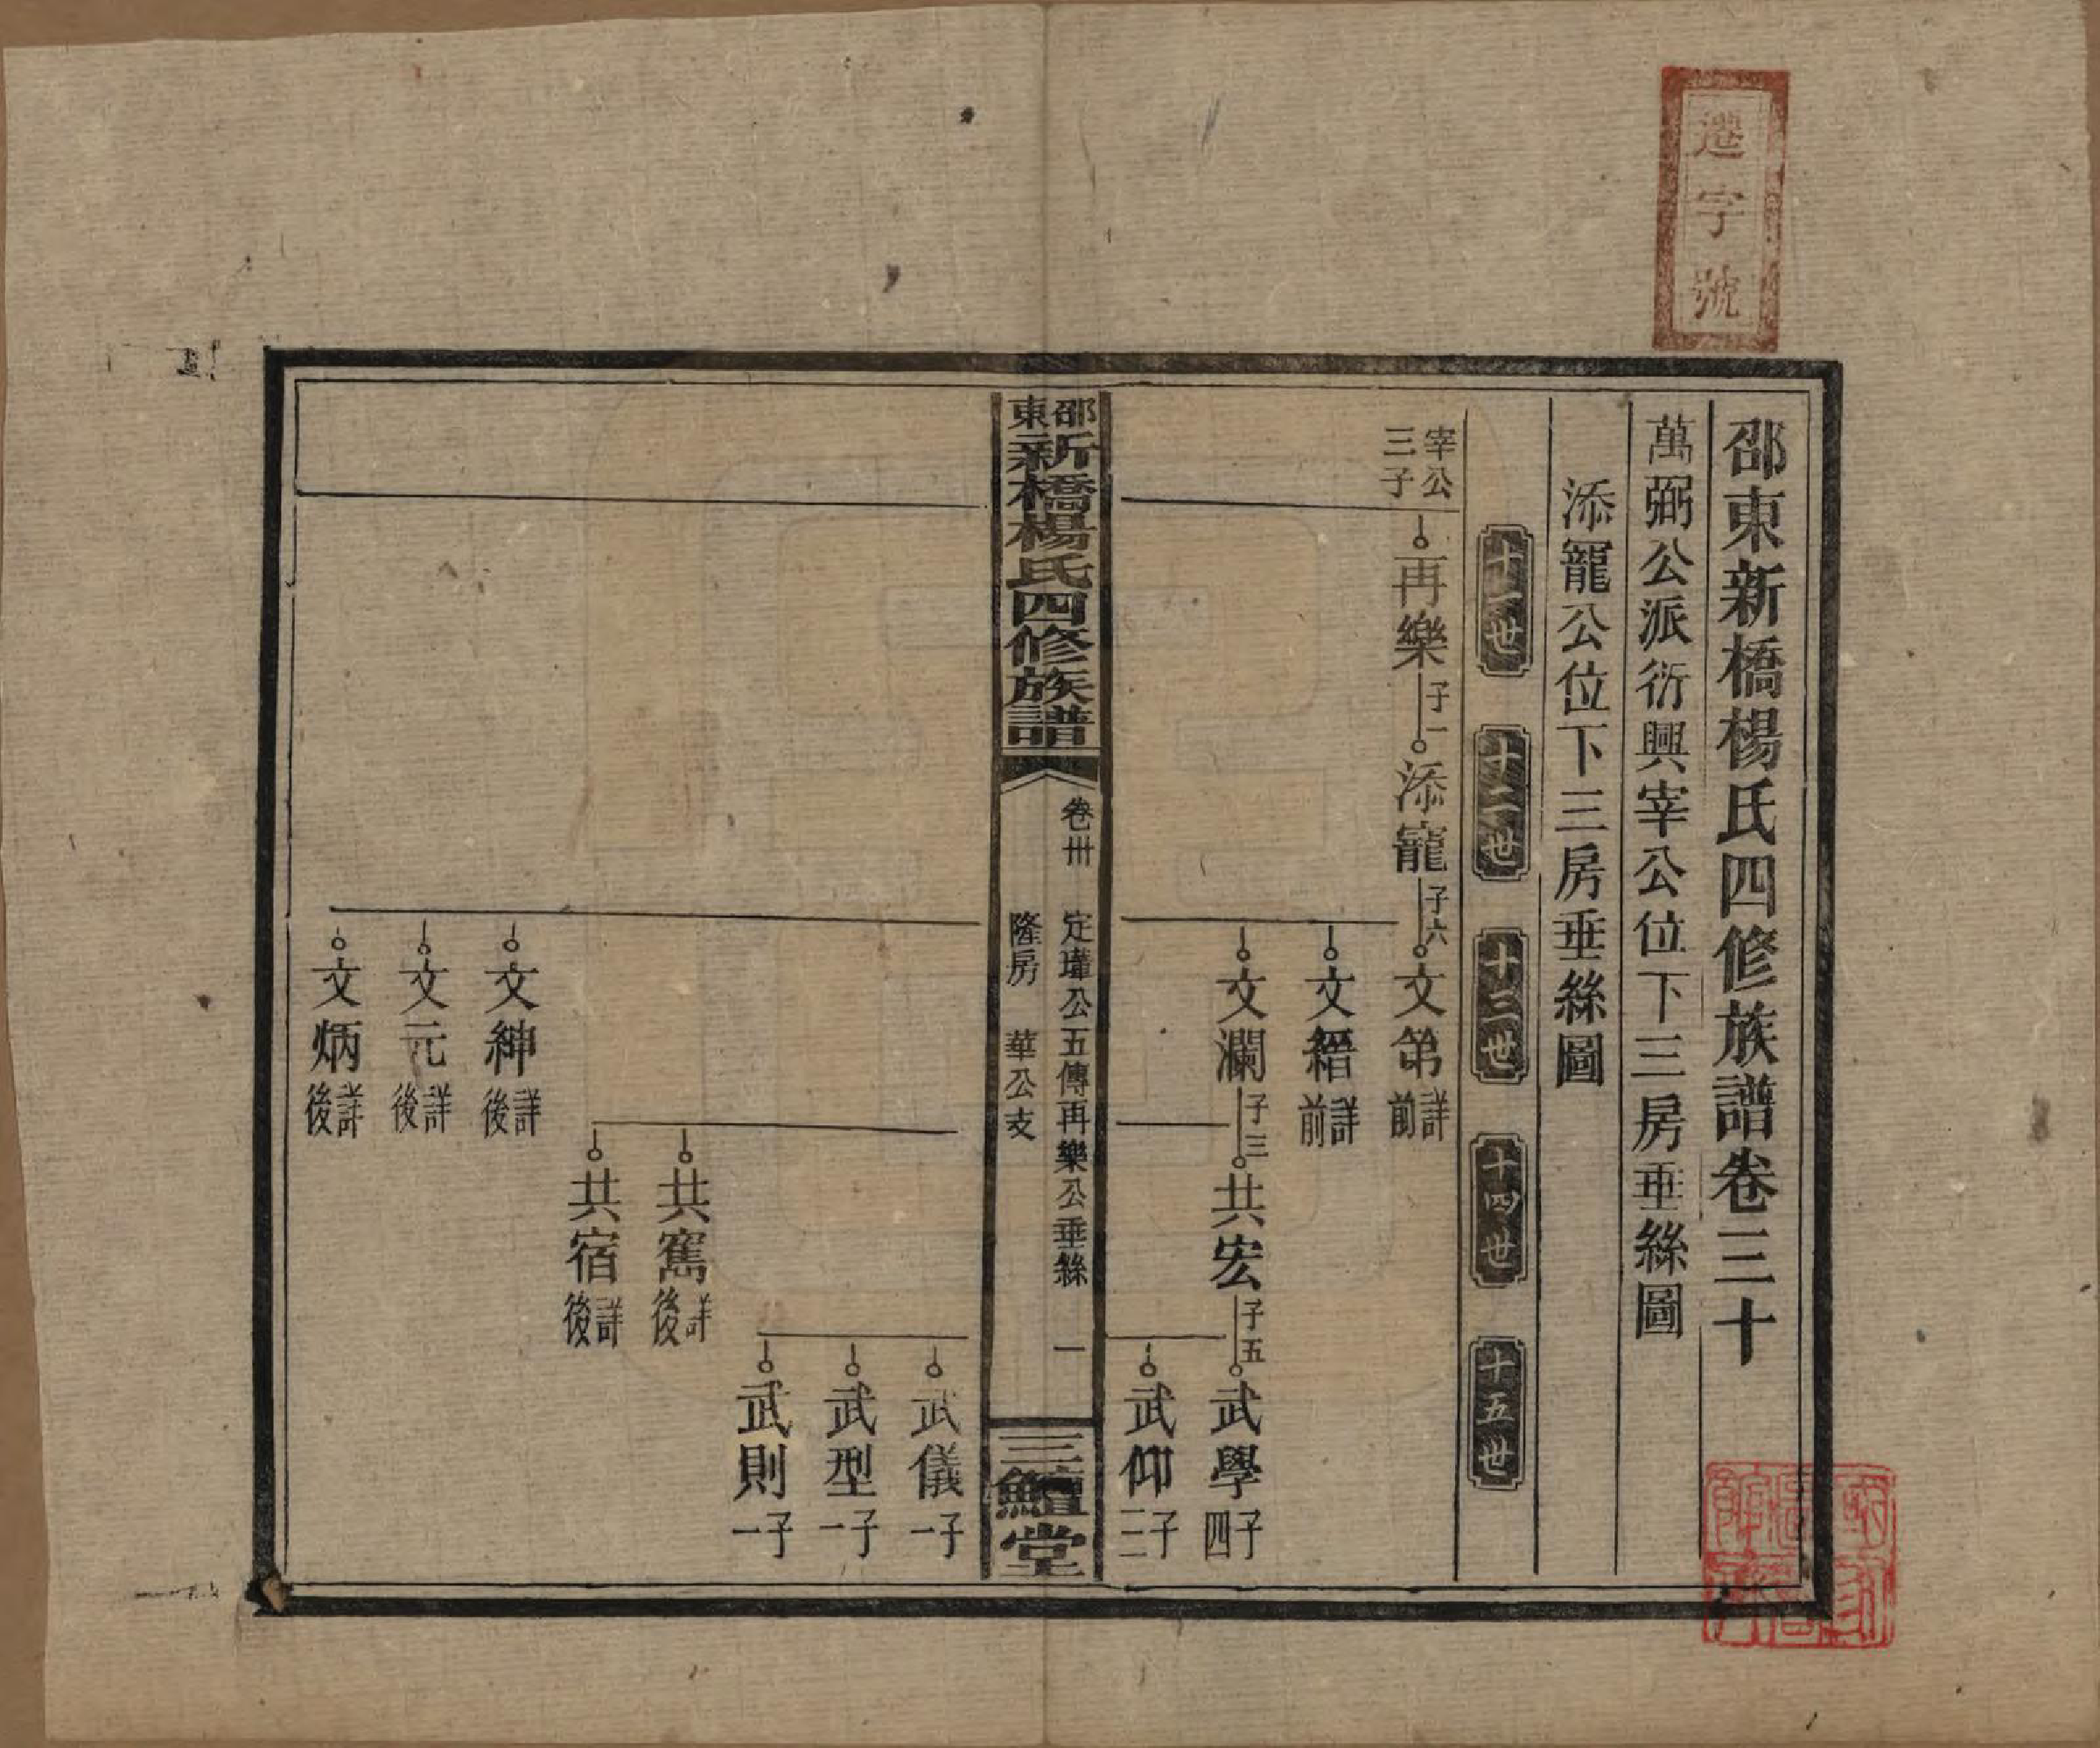 遷字號
邵東新橋楊氏四修族譜卷三十
萬弼公派衍興宰公位下三房垂絲圖
添寵公位下三房垂絲圖
十一世
十二世
十三世
十四世
十五世
宰公三子
再樂
子一
添寵
子六
文第
詳前
文縉
詳前
文瀾
子三
共宏
子五
武學
子四
武仰
子二
邵東新橋楊氏四修族譜
卷卅
定瓘公五傳再樂公垂絲
一
隆房
華公支
三鱣堂
武儀
子一
武型
子一
武則
子一
共寯
詳後
共宿
詳後
文紳
詳後
文元
詳後
文炳
詳後